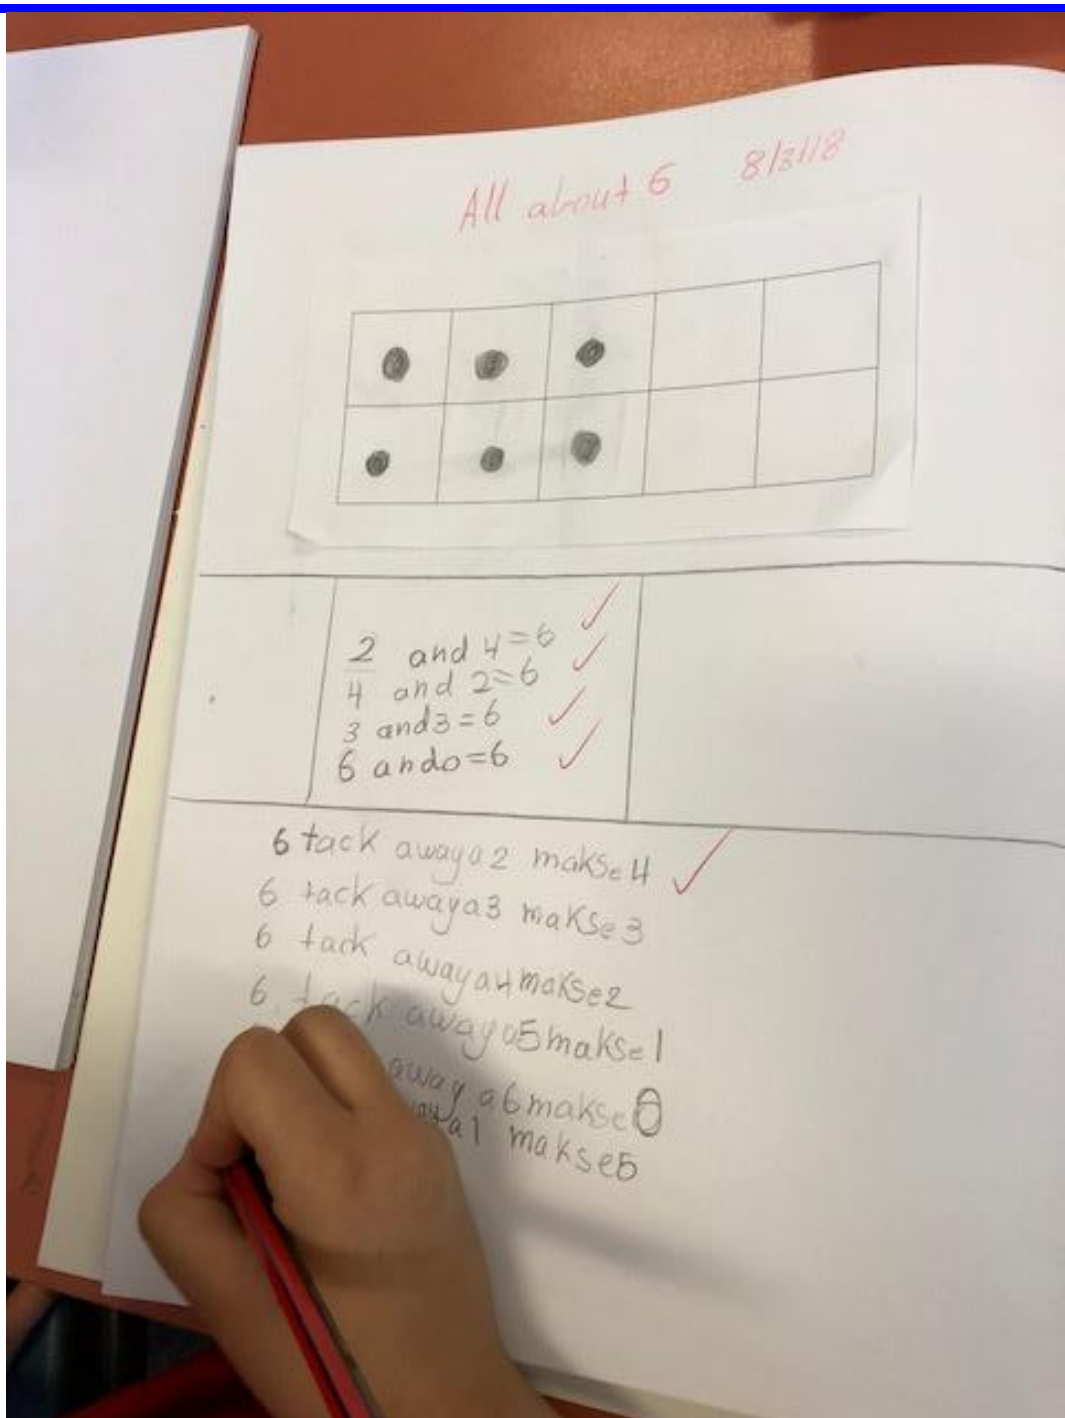 All about 6 8/3/18
2 and 4=6
4 and 2=6
3 and3=6
6 and0=6
6 tack awaya2 makse4
6 tack awaya3 makse3
6 tack awaya4makse2
6 tack awaya5makse1
away a6makse0
a1 makse5